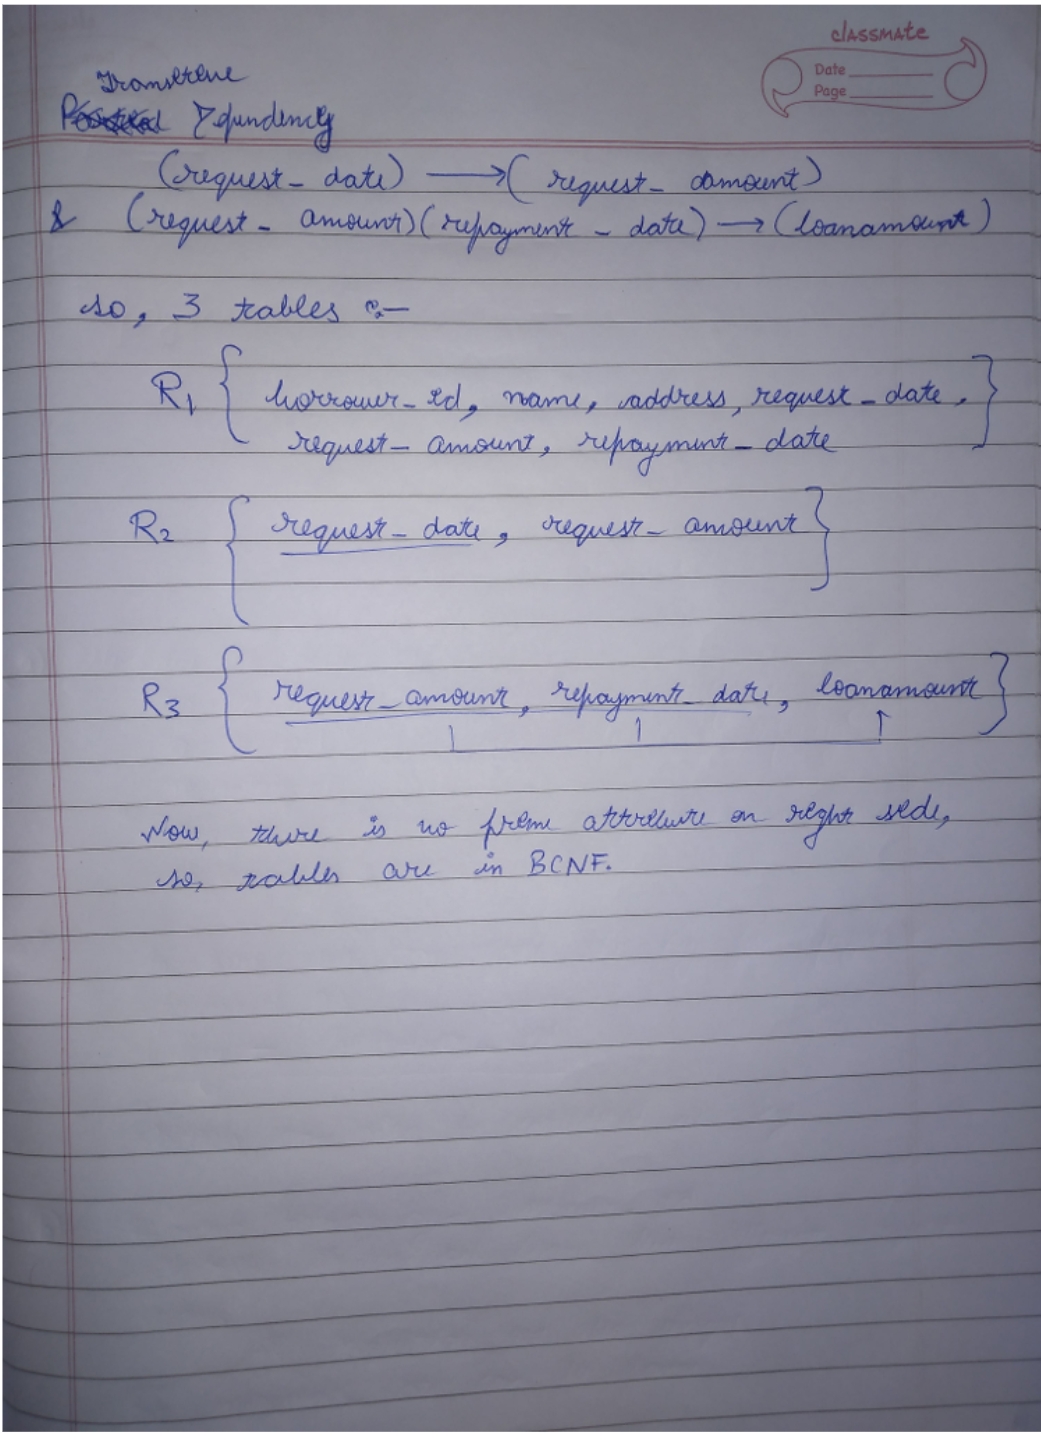 classmate
Date
Page
Transitive
Dependency
(request_date) → (request_amount)
& (request_amount)(repayment_date) → (loanamount)
so, 3 tables :-
R1 { borrower_id, name, address, request_date,
request_amount, repayment_date }
R2 { request_date, request_amount }
R3 { request_amount, repayment_date, loanamount }
Now, there is no prime attribute on right side,
so, tables are in BCNF.